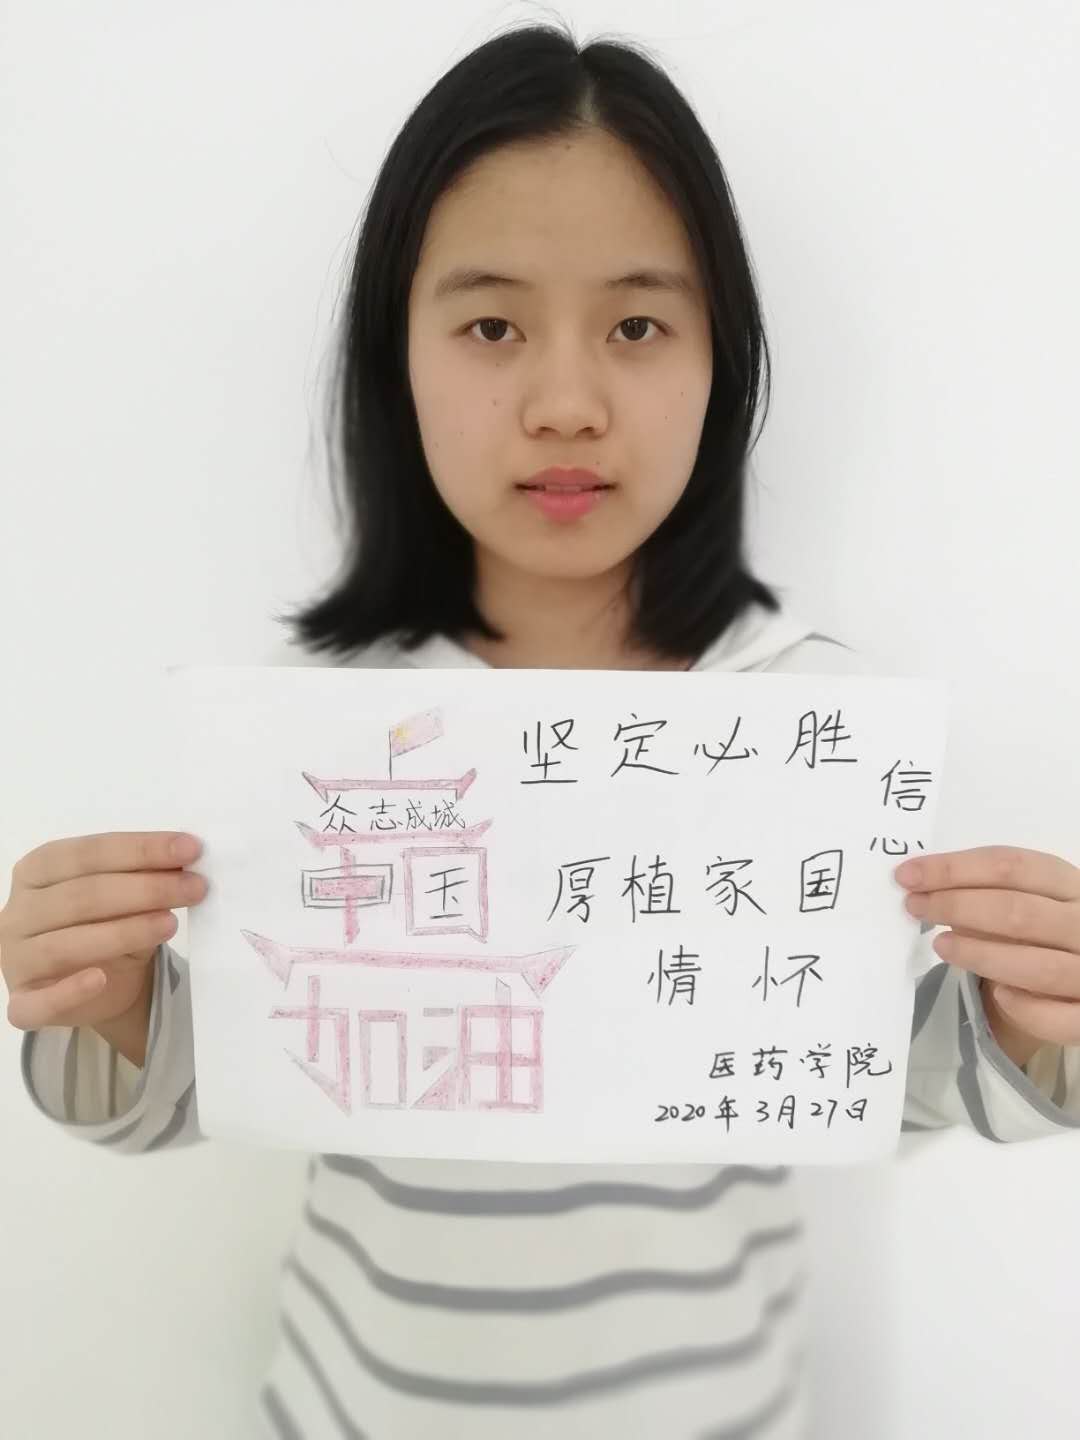 众志成城
中国
加油
坚定必胜
信心
厚植家国
情怀
医药学院
2020年3月27日